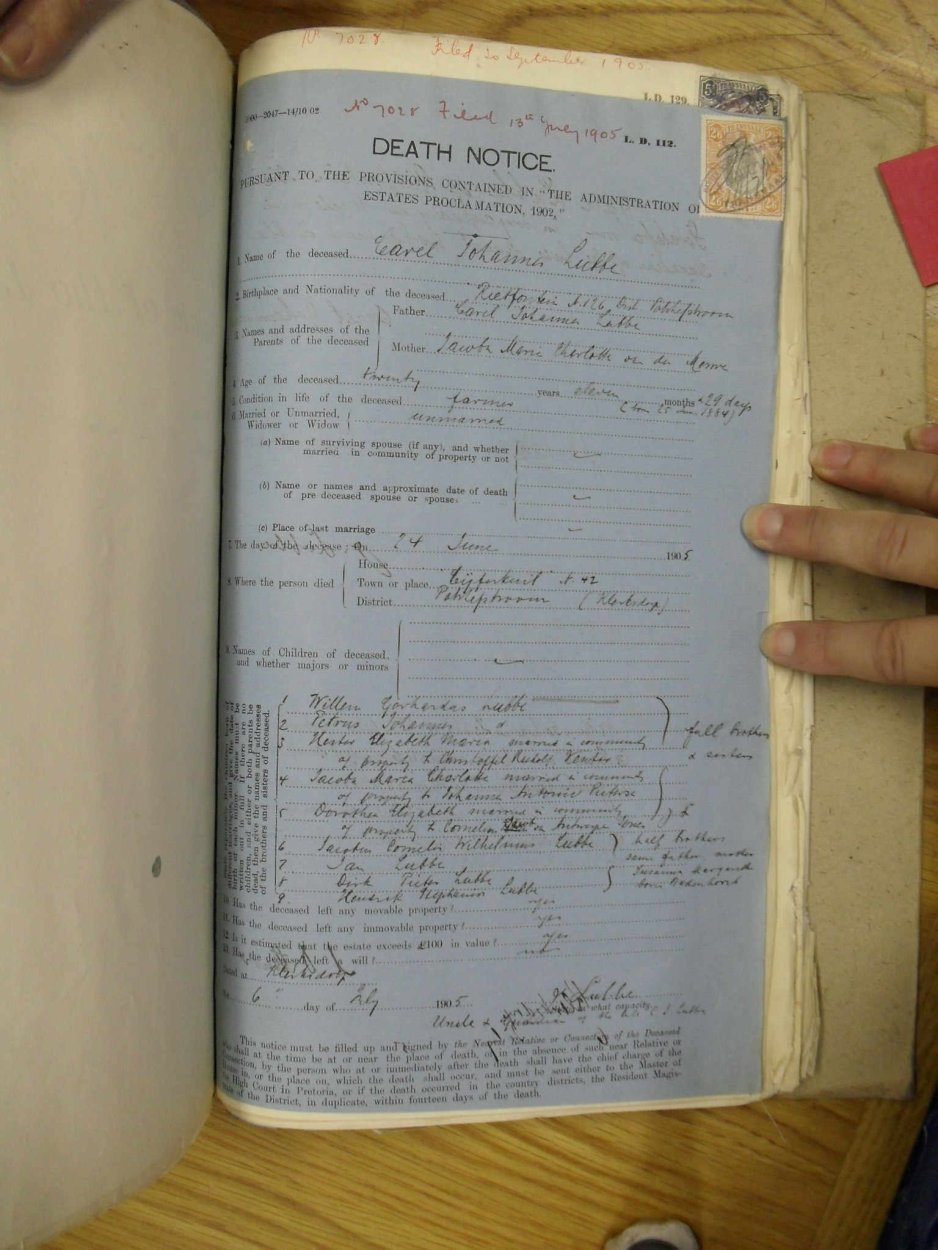 No 7028 Filed 20 September 1905
L.D. 129.
2047—14/10 02
No 7028 Filed 13th July 1905
L. D. 112.
DEATH NOTICE.
PURSUANT TO THE PROVISIONS CONTAINED IN "THE ADMINISTRATION OF
ESTATES PROCLAMATION, 1902,"
1. Name of the deceased Carel Johannes Lubbe
2. Birthplace and Nationality of the deceased Rietfontein N.126, Dist Potchefstroom
3. Names and addresses of the Parents of the deceased
Father Carel Johannes Lubbe
Mother Jacoba Maria Charlotte v d Merwe
4. Age of the deceased twenty years eleven months & 29 days
(born 25 June 1884)
5. Condition in life of the deceased farmer
6. Married or Unmarried, Widower or Widow unmarried
(a) Name of surviving spouse (if any), and whether
married in community of property or not
(b) Name or names and approximate date of death
of pre deceased spouse or spouse:
(c) Place of last marriage
7. The day of the decease; On 24 June 1905
8. Where the person died
House
Town or place Cijferkuil N 42
District Potchefstroom (Klerksdorp)
9. Names of Children of deceased,
and whether majors or minors
children, and either or both parents be
dead, then give the names and addresses
of the brothers and sisters of deceased.
1 Willem Gerhardus Lubbe
2 Petrus Johannes
3 Hester Elizabeth Maria married in community
of property to Christoffel Rudolf Venter
full brothers
& sisters
4 Jacoba Maria Charlotte married in community
of property to Johannes Antonie Pretorius
5 Dorothea Elizabeth married in community
of property to Cornelis
6 Jacobus Cornelis Wilhelmus Lubbe
7 Jan Lubbe
8 Dirk Pieter Lubbe
9. Hendrik Stephanus Lubbe
half brothers
same father, mother
Susanna Margaretha
born Badenhorst
10. Has the deceased left any movable property? yes
11. Has the deceased left any immovable property? yes
12. Is it estimated that the estate exceeds £100 in value? yes
13. Has the deceased left a will? no
Dated at Klerksdorp
6 day of July 1905
Lubbe
in what capacity
Uncle & Guardian of the C J Lubbe
This notice must be filled up and signed by the Nearest Relative or Connection of the Deceased
who shall at the time be at or near the place of death, or in the absence of such near Relative or
Connection, by the person who at or immediately after the death shall have the chief charge of the
House in, or the place on, which the death shall occur, and must be sent either to the Master of
the High Court In Pretoria, or if the death occurred in the country districts, the Resident Magis-
of the District, in duplicate, within fourteen days of the death.